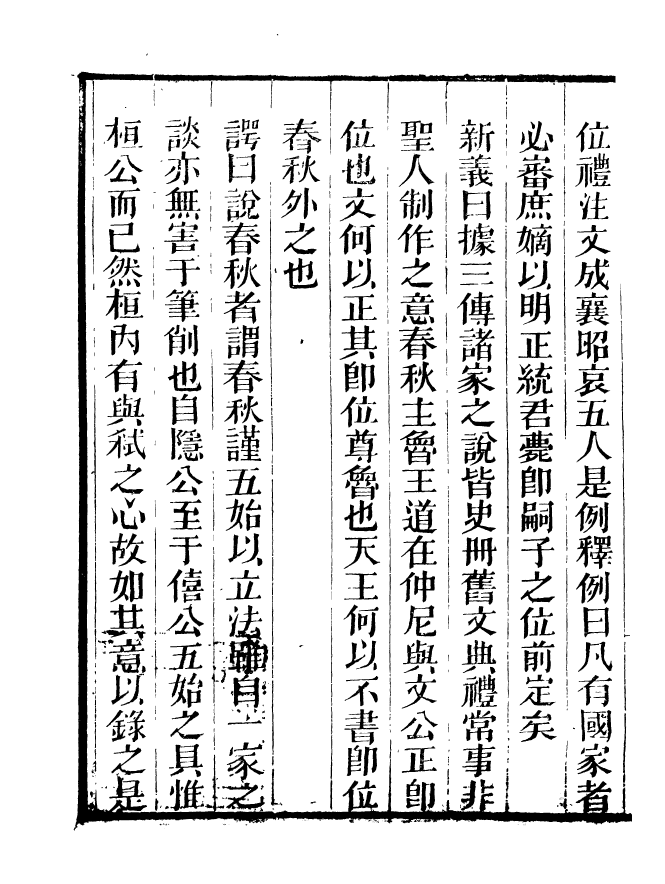 位禮注文成襄昭哀五人是例釋例曰凡有國家者
必審庶嫡以明正統君薨卽嗣子之位前定矣
新義曰據三傳諸家之說皆史冊舊文典禮常事非
聖人制作之意春秋主魯王道在仲尼與文公正卽
位也文何以正其卽位尊魯也天王何以不書卽位
春秋外之也
諤曰說春秋者謂春秋謹五始以立法雖自一家之
談亦無害于筆削也自隱公至于僖公五始之具惟
桓公而已然桓內有與弒之心故如其意以錄之是